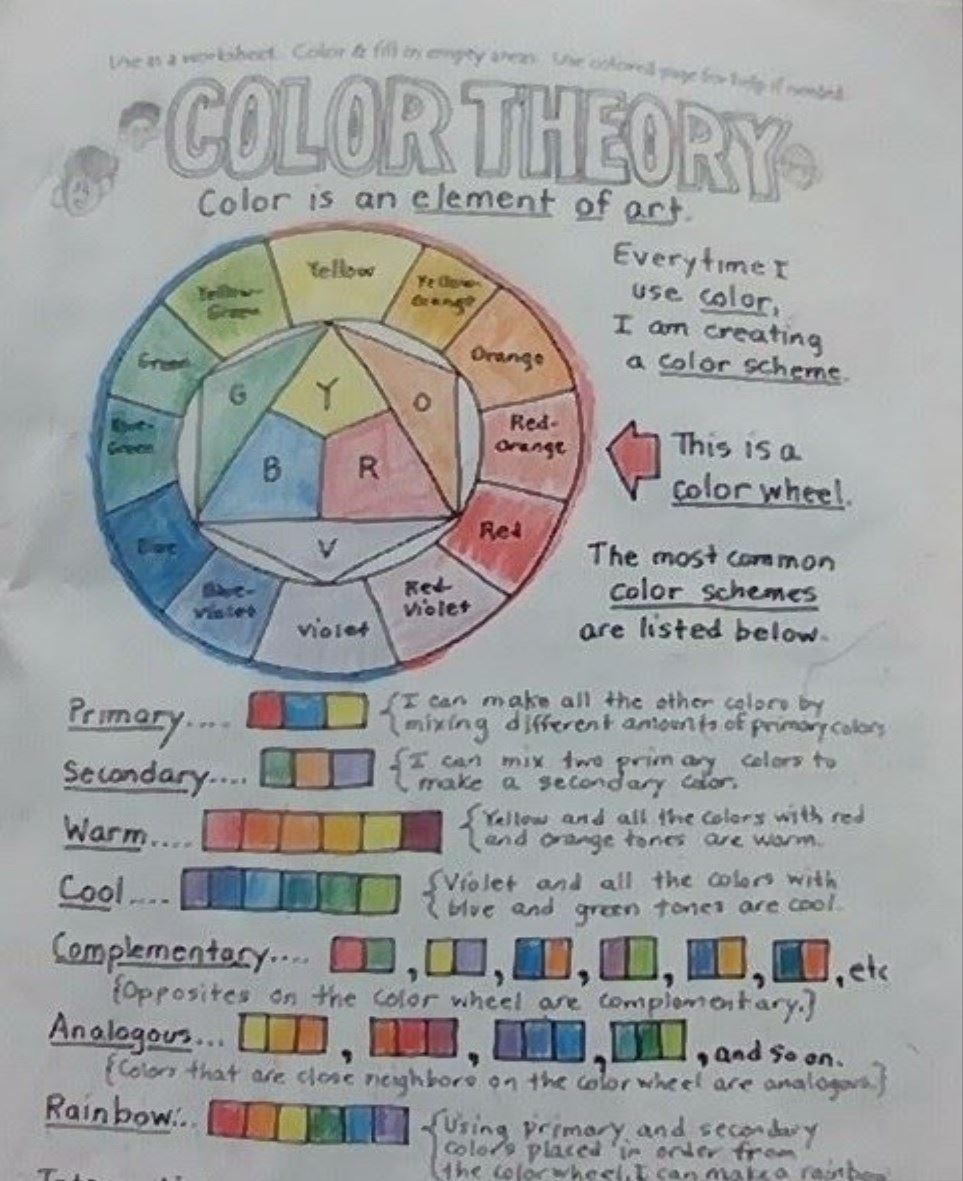 Use as a worksheet. Color & fill in empty areas. Use colored page for help if needed.
COLOR THEORY
Color is an element of art.
Everytime I
use color,
I am creating
a color scheme.
Yellow
Yellow-
Orange
Orange
Red-
Orange
Red
Red-
Violet
Violet
Blue-
Violet
Blue
Blue-
Green
Green
Yellow-
Green
G
Y
O
B
R
V
This is a
color wheel.
The most common
color schemes
are listed below.
Primary.... {I can make all the other colors by
mixing different amounts of primary colors
Secondary.... {I can mix two primary colors to
make a secondary color.
Warm.... {Yellow and all the colors with red
and orange tones are warm.
Cool.... {Violet and all the colors with
blue and green tones are cool.
Complementary.... , , , , , , etc
{Opposites on the color wheel are complementary.}
Analogous... , , , , and so on.
{Colors that are close neighbors on the color wheel are analogous.}
Rainbow... {Using primary and secondary
colors placed in order from
the color wheel, I can make a rainbow